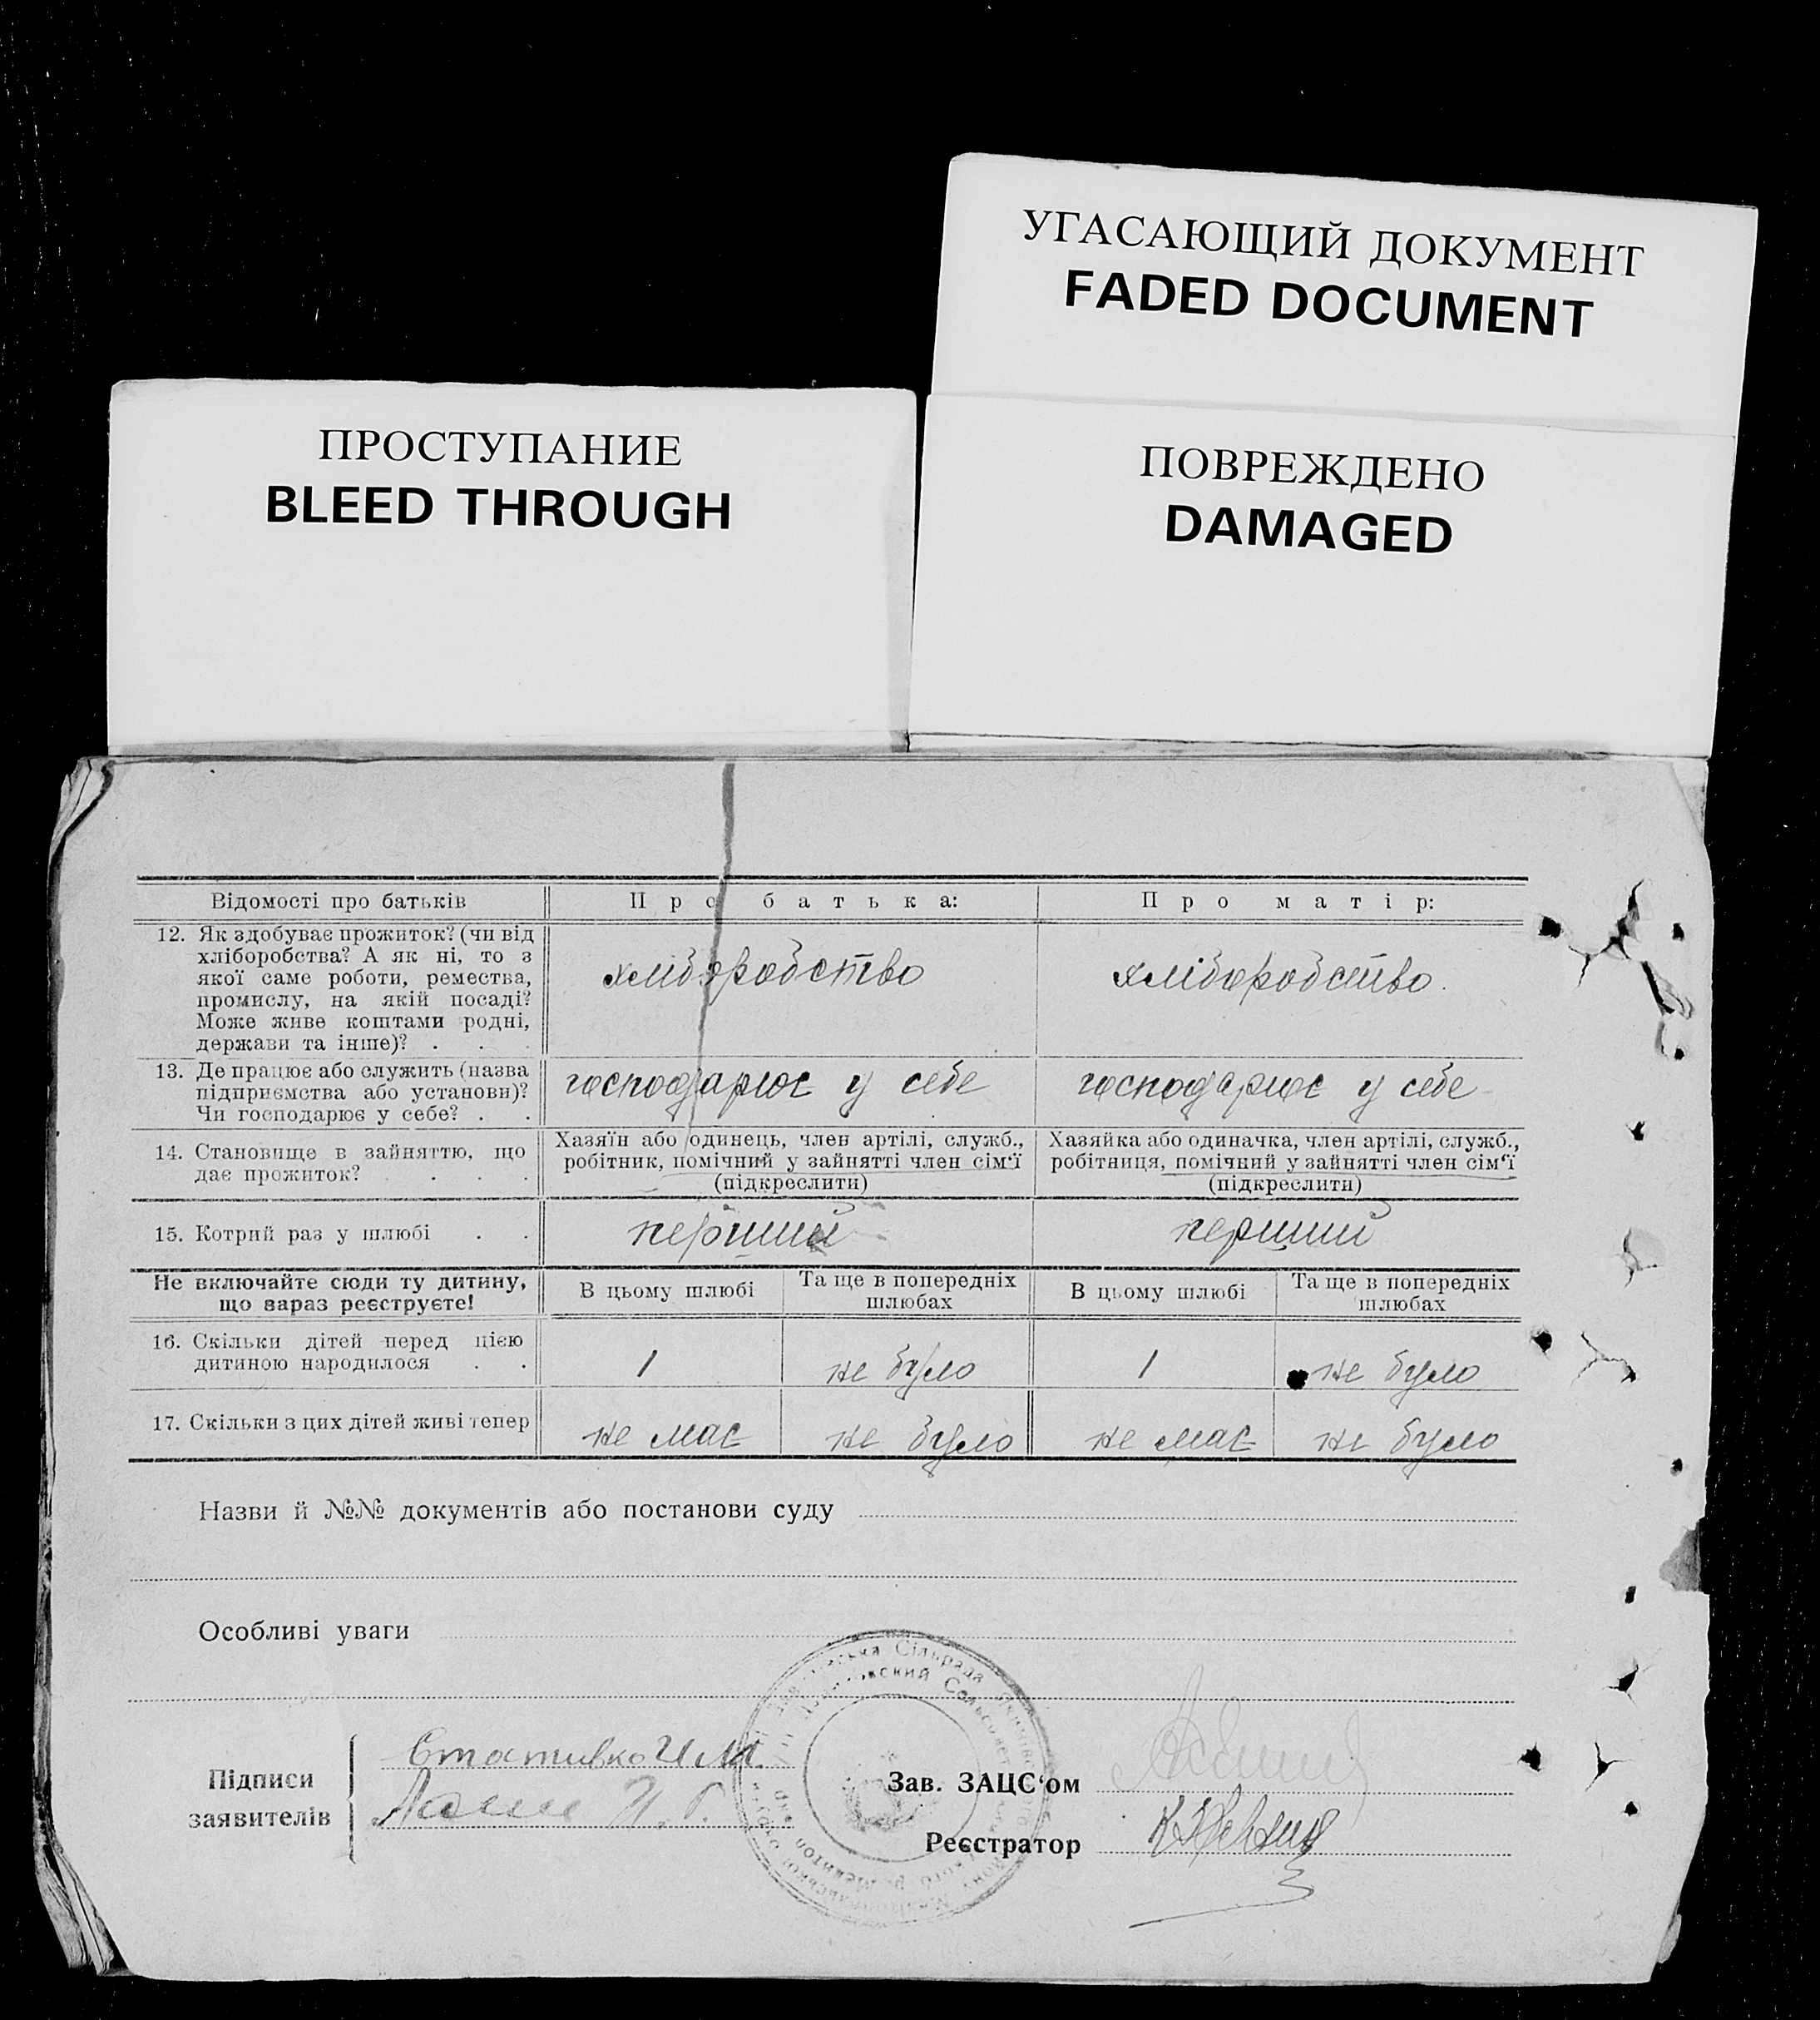 УГАСАЮЩИЙ ДОКУМЕНТ
FADED DOCUMENT
ПРОСТУПАНИЕ
BLEED THROUGH
ПОВРЕЖДЕНО
DAMAGED
Відомості про батьків
Про батька:
Про матір:
12. Як здобуває прожиток? (чи від
хліборобства? А як ні, то з
якої саме роботи, ремества,
промислу, на якій посаді?
Може живе коштами родні,
держави та інше)? . . .
хліборобство
хліборобство.
13. Де працює або служить (назва
підприємства або установи)?
Чи господарює у себе? . .
господарює у себе
господарює у себе
14. Становище в зайняттю, що
дає прожиток? . . .
Хазяїн або одинець, член артілі, служб.,
робітник, помічний у зайнятті член сім'ї
(підкреслити)
Хазяйка або одиначка, член артілі, служб.,
робітниця, помічний у зайнятті член сім'ї
(підкреслити)
15. Котрий раз у шлюбі . .
перший
перший
Не включайте сюди ту дитину,
що вараз реєструєте!
В цьому шлюбі
Та ще в попередніх
шлюбах
В цьому шлюбі
Та ще в попередніх
шлюбах
16. Скільки дітей перед цією
дитиною народилося . .
1
не було
1
не було
17. Скільки з цих дітей живі тепер
не має
не було
не має
не було
Назви й №№ документів або постанови суду
Особливі уваги
Підписи
заявителів
Стативко И М.
Зав. ЗАЦС'ом
Реєстратор
Сільрада